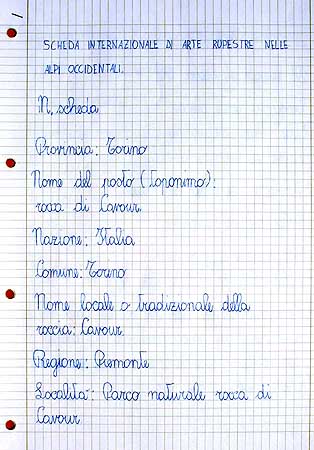 SCHEDA INTERNAZIONALE DI ARTE RUPESTRE NELLE
ALPI OCCIDENTALI.
N. scheda
Provincia: Torino
Nome del posto (Toponimo):
rocca di Cavour
Nazione: Italia
Comune: Torino
Nome locale o tradizionale della
roccia: Cavour.
Regione: Piemonte
Località: Parco naturale rocca di
Cavour